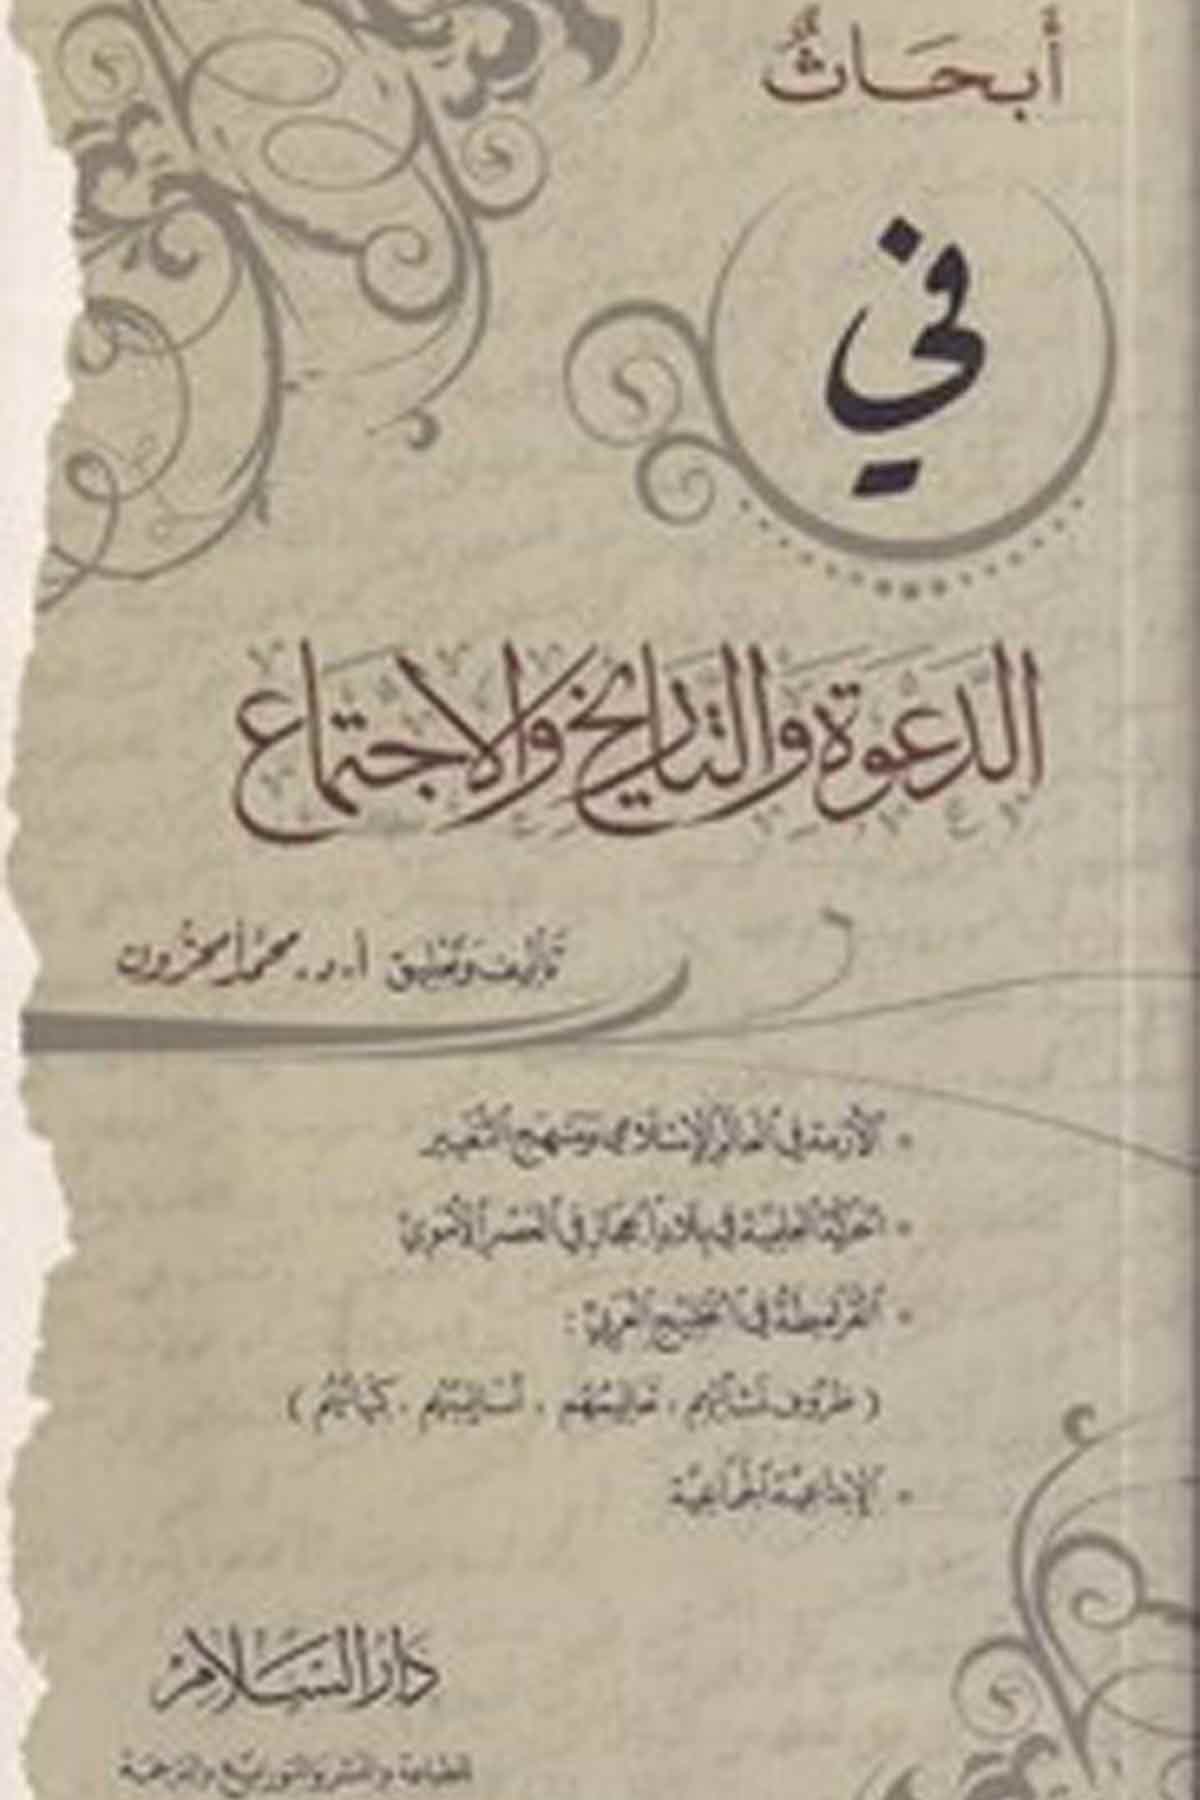 أبحاثٌ
في
الدعوة والتاريخ والاجتماع
تأليف وتعليق أ. د. محمد أمحزون
• الأزمة في العالم الإسلامي ومنهج التغيير
• الحركة العلمية في بلاد الحجاز في العصر الأموي
• القرامطة في الخليج العربي :
( ظروف نشأتهم ، تعاليمهم ، أساليبهم ، كياناتهم )
• الإبداعية الجماعية
دار السلام
للطباعة والنشر والتوزيع والترجمة